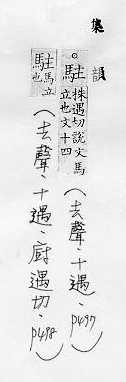 集韻
○駐 株遇切說文馬立也文十四
(去聲、十遇、P497)
駐 馬立也
(去聲、十遇、廚遇切、P498)